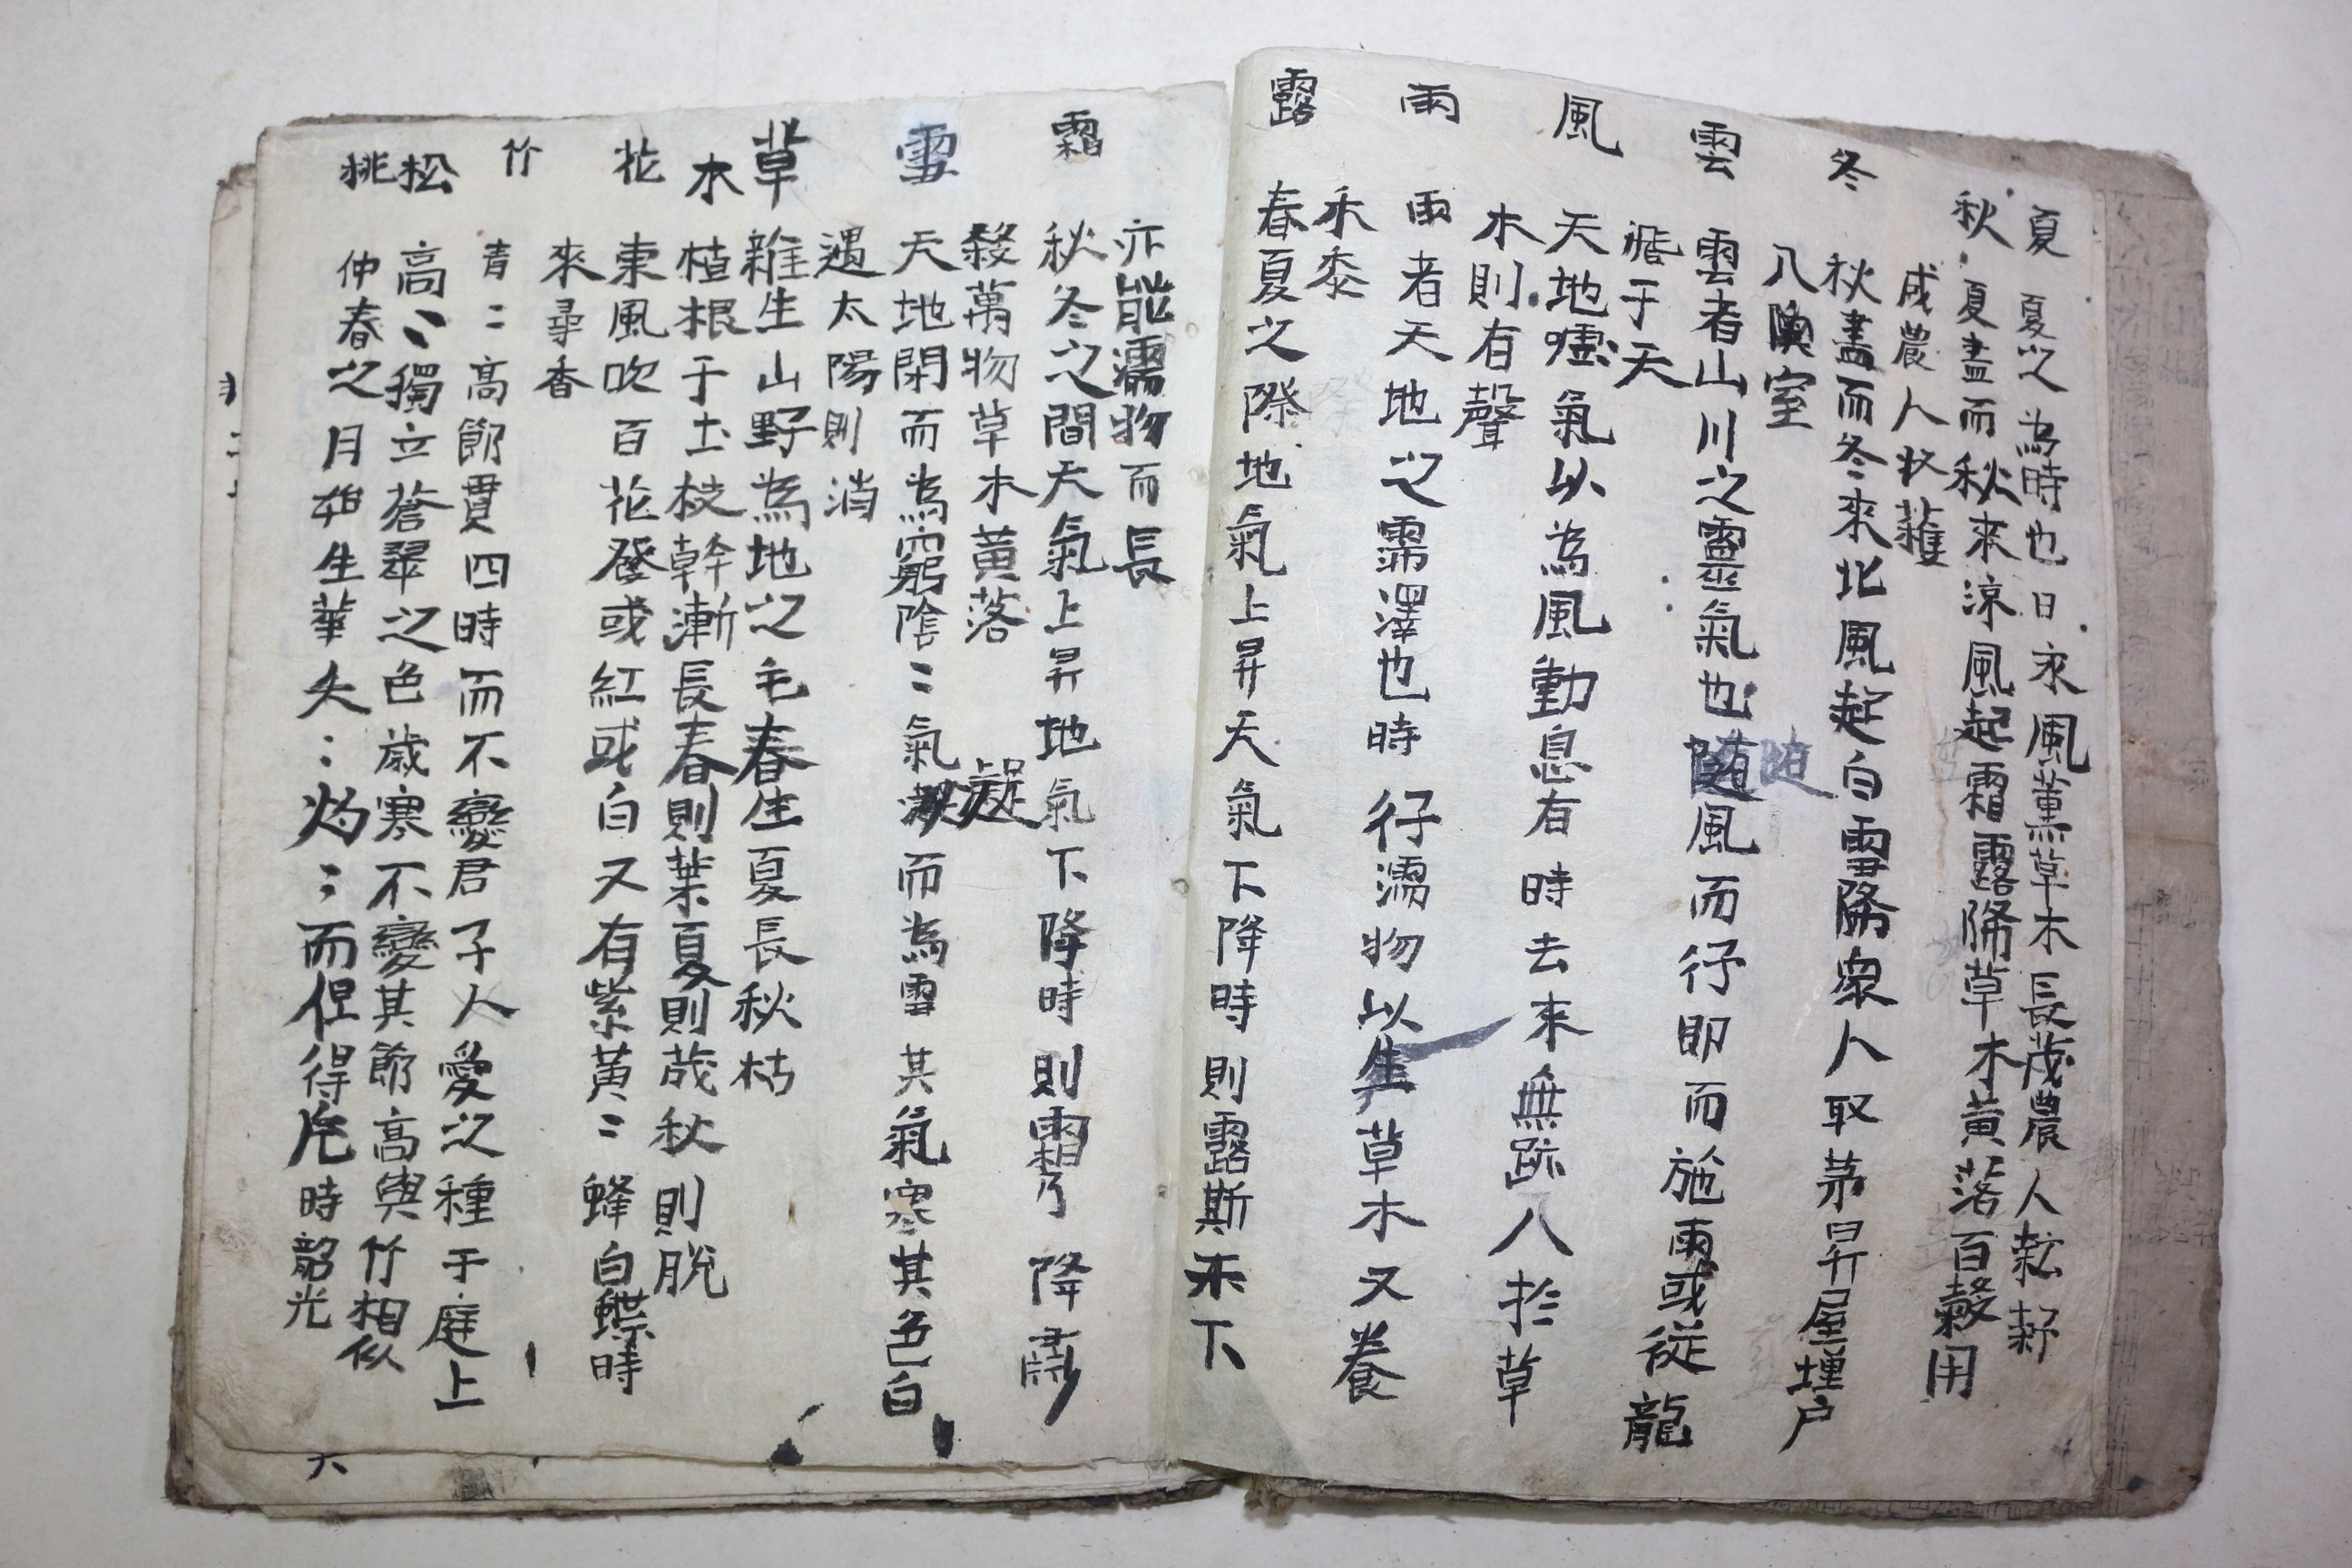 夏 夏之為時也日永風薰草木長茂農人耘耔
秋 夏盡而秋來涼風起霜露降草木黃落百穀用
成農人收穫
冬 秋盡而冬來北風起白雪降衆人取茅昇屋墐户
入奧室
雲 雲者山川之靈氣也隨風而行即而施雨或從龍
隨
飛于天
風 天地噓氣以為風動息有時去來無跡入於草
木則有聲
雨 雨者天地之霈澤也時行濡物以生草木又養
禾黍
露 春夏之際地氣上昇天氣下降時則露斯禾下
亦能濡物而長
霜 秋冬之間天氣上昇地氣下降時則霜乃降肅
殺萬物草木黃落
凝
雪 天地閉而為窮陰〻氣凝而為雪其氣寒其色白
遇太陽則消
草 雜生山野為地之毛春生夏長秋枯
木 植根于土枝幹漸長春則葉夏則茂秋則脫
花 東風吹百花發或紅或白又有紫黃〻蜂白蝶時
來尋香
竹 青〻高節貫四時而不變君子人愛之種于庭上
松 高〻獨立蒼翠之色歲寒不變其節高與竹相似
桃 仲春之月始生華夭〻灼〻而但得片時韶光
六